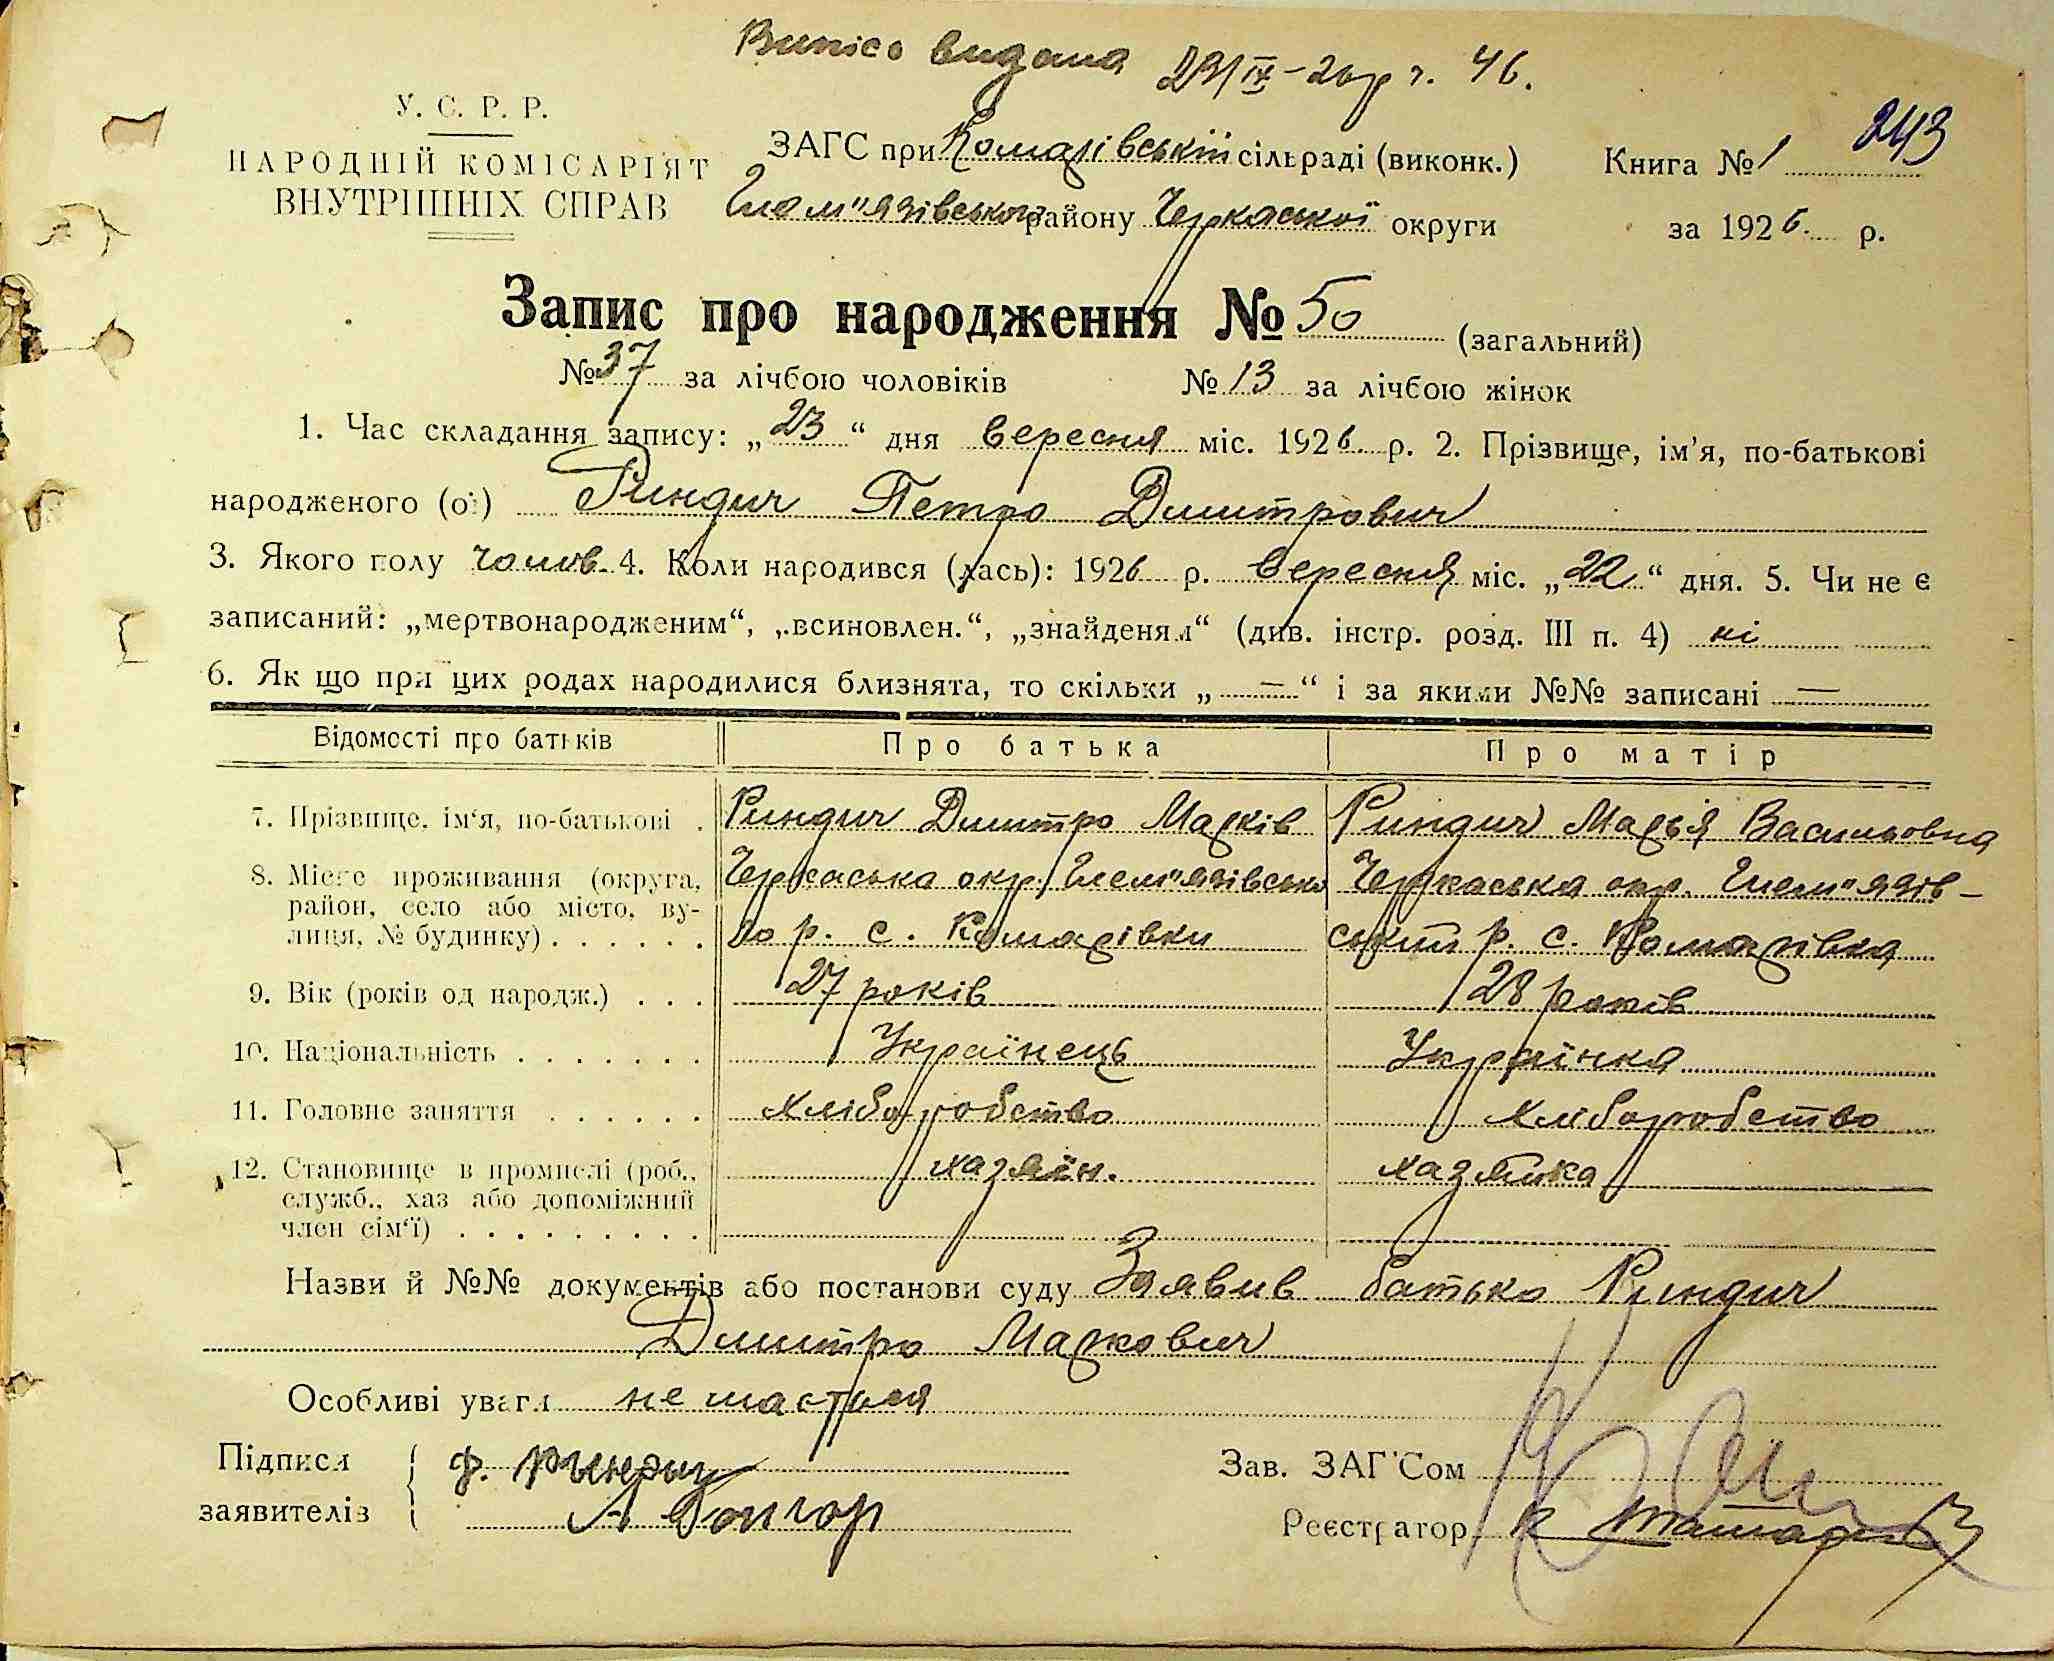 Випіс видана 29/IX-26 р г. 46.
У. С. Р. Р.
НАРОДНІЙ КОМІСАРІЯТ
ВНУТРІШНІХ СПРАВ
ЗАГС при Комарівській сільраді (виконк.)
Гельм"язівського району Черкаської округи
Книга № 1
243
за 1926 р.
Запис про народження № 50 (загальний)
№ 37 за лічбою чоловіків № 13 за лічбою жінок
1. Час складання запису: „23“ дня вересня міс. 1926 р. 2. Прізвище, ім'я, по-батькові
народженого (ої) Риндич Петро Дмитрович
3. Якого полу чолов. 4. Коли народився (лась): 1926 р. вересня міс. „22“ дня. 5. Чи не є
записаний: „мертвонародженим“, „всиновлен.“, „знайденям“ (див. інстр. розд. III п. 4) ні
6. Як що при цих родах народилися близнята, то скільки „—“ і за якими №№ записані —
Відомості про батьків Про батька Про матір
7. Прізвище, ім'я, по-батькові . Риндич Дмитро Марків Риндич Марья Васильовна
8. Місце проживання (округа, Черкаська окр. Гельм"язівсько Черкаська окр. Гельм"язів-
район, село або місто, ву-
лиця, № будинку) . . . . . . го р. с. Комарівки ський р. с. Комарівка
9. Вік (років од народж.) . . . 27 років 28 років
10. Національність . . . . . . . Українець Українка
11. Головне заняття . . . . . . хліборобство хліборобство
12. Становище в промислі (роб., хазяїн. хазяйка
служб., хаз або допоміжний
член сім'ї) . . . . . . . . .
Назви й №№ документів або постанови суду Заявив батько Риндич
Дмитро Маркович
Особливі уваги не мається
Підписи
заявителів
Зав. ЗАГС'ом
Реєстратор